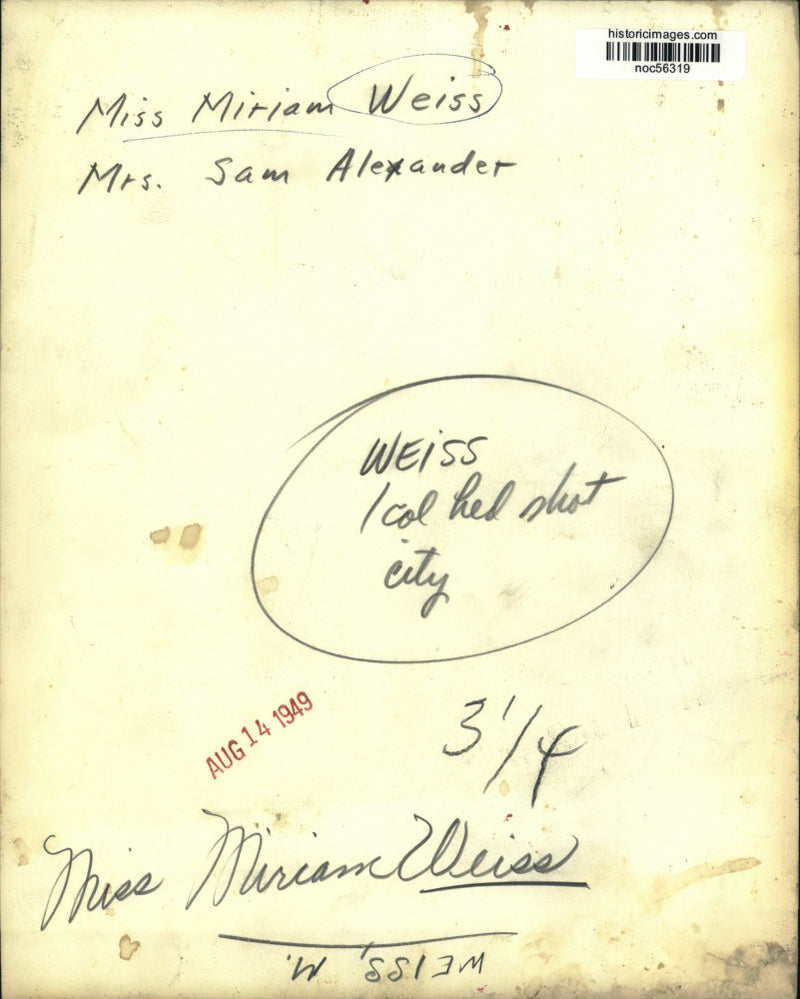 historicimages.com
noc56319
Miss Miriam Weiss
Mrs. Sam Alexander
WEISS
1 col hed shot
city
AUG 14 1949
3 1/4
Miss Miriam Weiss
WEISS, M.